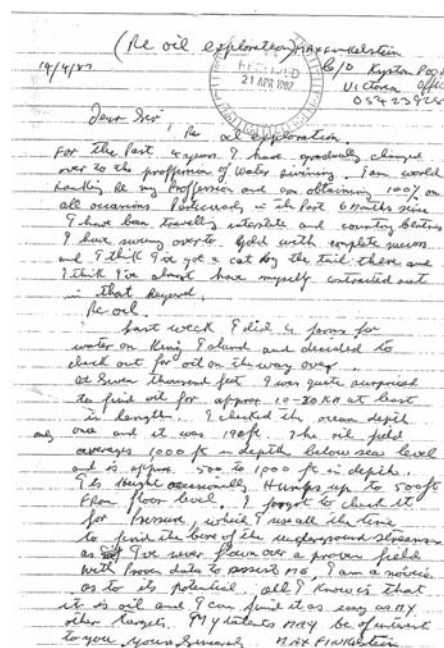 (Re oil exploration) MAX FINKELSTEIN
14/4/87 C/O Kyeton
RECEIVED Victoria
21 APR 1987
Dear Sir,
Re oil exploration.
For the Past 4 years I have gradually changed
over to the proffession of Water Divining. I am world
Ranking Re my Proffession and am obtaining 100% on
all occasions Particularly in the Past 6 Months since
I have been travelling interstate and country
I have swung over to Gold with complete success
and I think I've got a cat by the tail there and
I think I've almost have myself contracted out
in that Regard.
Re oil.
Last week I did 4 farms for
water on King Island and decided to
check out for oil on the way over.
at Seven thousand feet I was quite surprised
to find oil for approx 10-20 KM at least
in length. I checked the ocean depth
only once and it was 190 ft. The oil field
averages 1000 ft in depth below sea level
and is approx. 500 to 1000 ft in depth.
Its Height occasionally Humps up to 500 ft
From floor level. I forgot to check it
for Pressure, which I use all the time
to find the bore of the underground streams
as I've never flown over a proven field
With Proven data to assist ME, I am a novice
as to its potential. all I know is that
it is oil and I can find it as easy as MY
other targets. MY talents MAY be of interest
to you Yours Sincerely MAX FINKELSTEIN